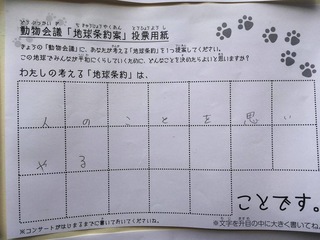 動物会議「地球条約案」投票用紙
きょうの「動物会議」に、あなたが考える「地球条約」を1つ提案してください。
この地球でみんなが平和にくらしていくために、どんなことを決めたらよいと思いますか?
わたしの考える「地球条約」は、
人のことを思い
やる
ことです。
※文字を升目の中に大きく書いてね。
※コンサートがはじまるまでに書いておいてくださいね。